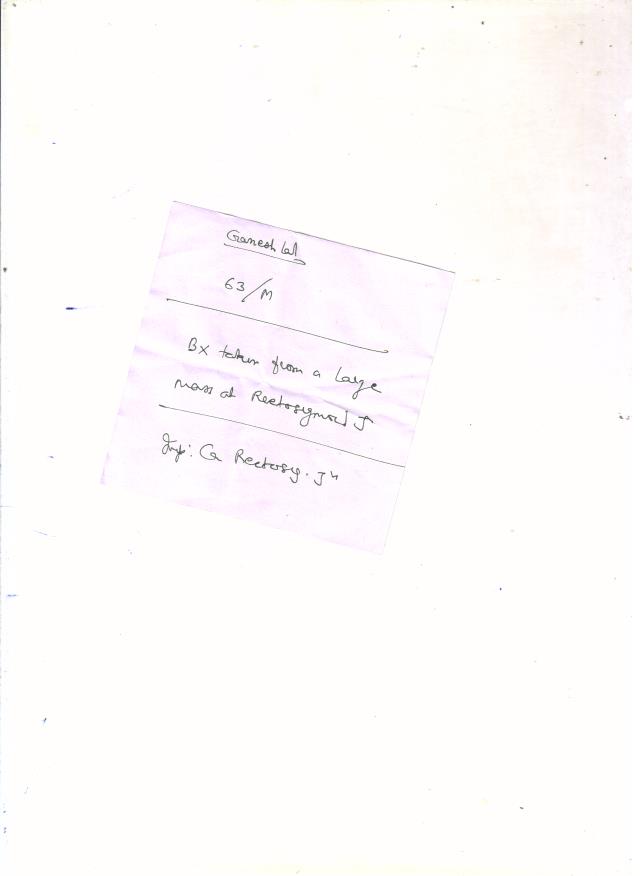 Ganesh Lal
63/M
BX taken from a large
mass at Rectosigmoid J
Imp: Ca Rectosig. Jn